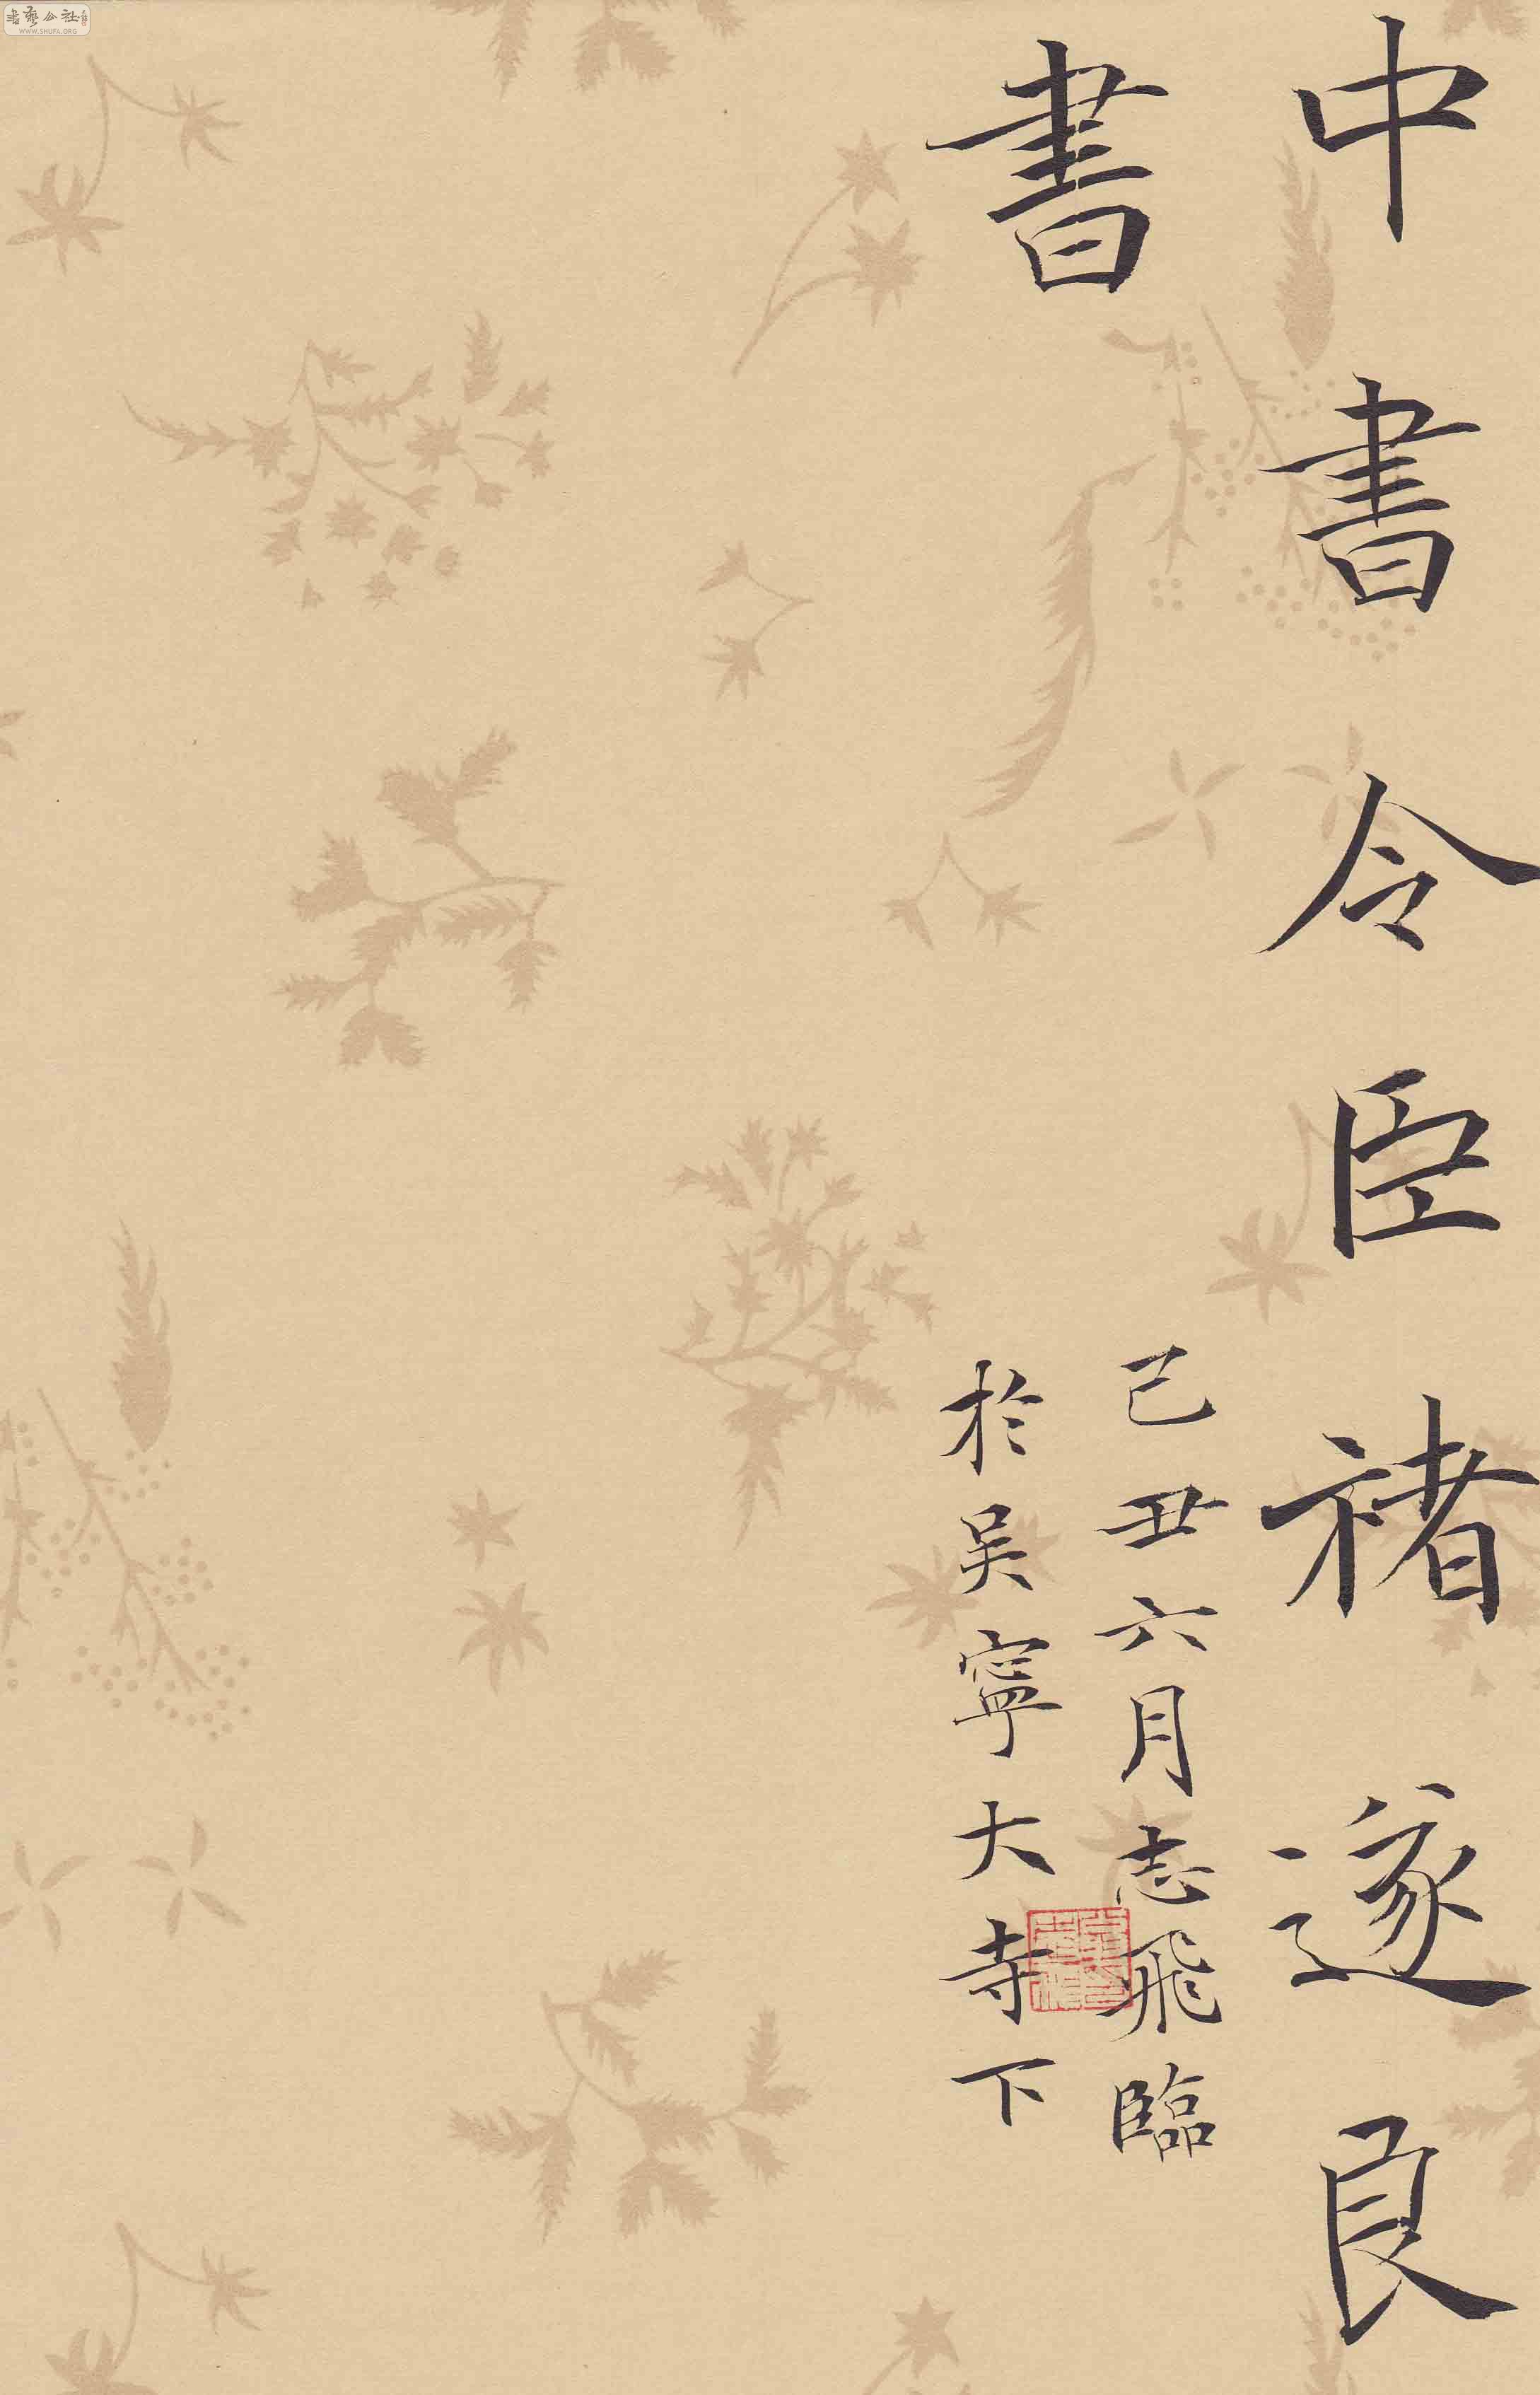 中書令臣褚遂良
書
己丑六月志飛臨
於吴寧大寺下
書藝公社
WWW.SHUFA.ORG